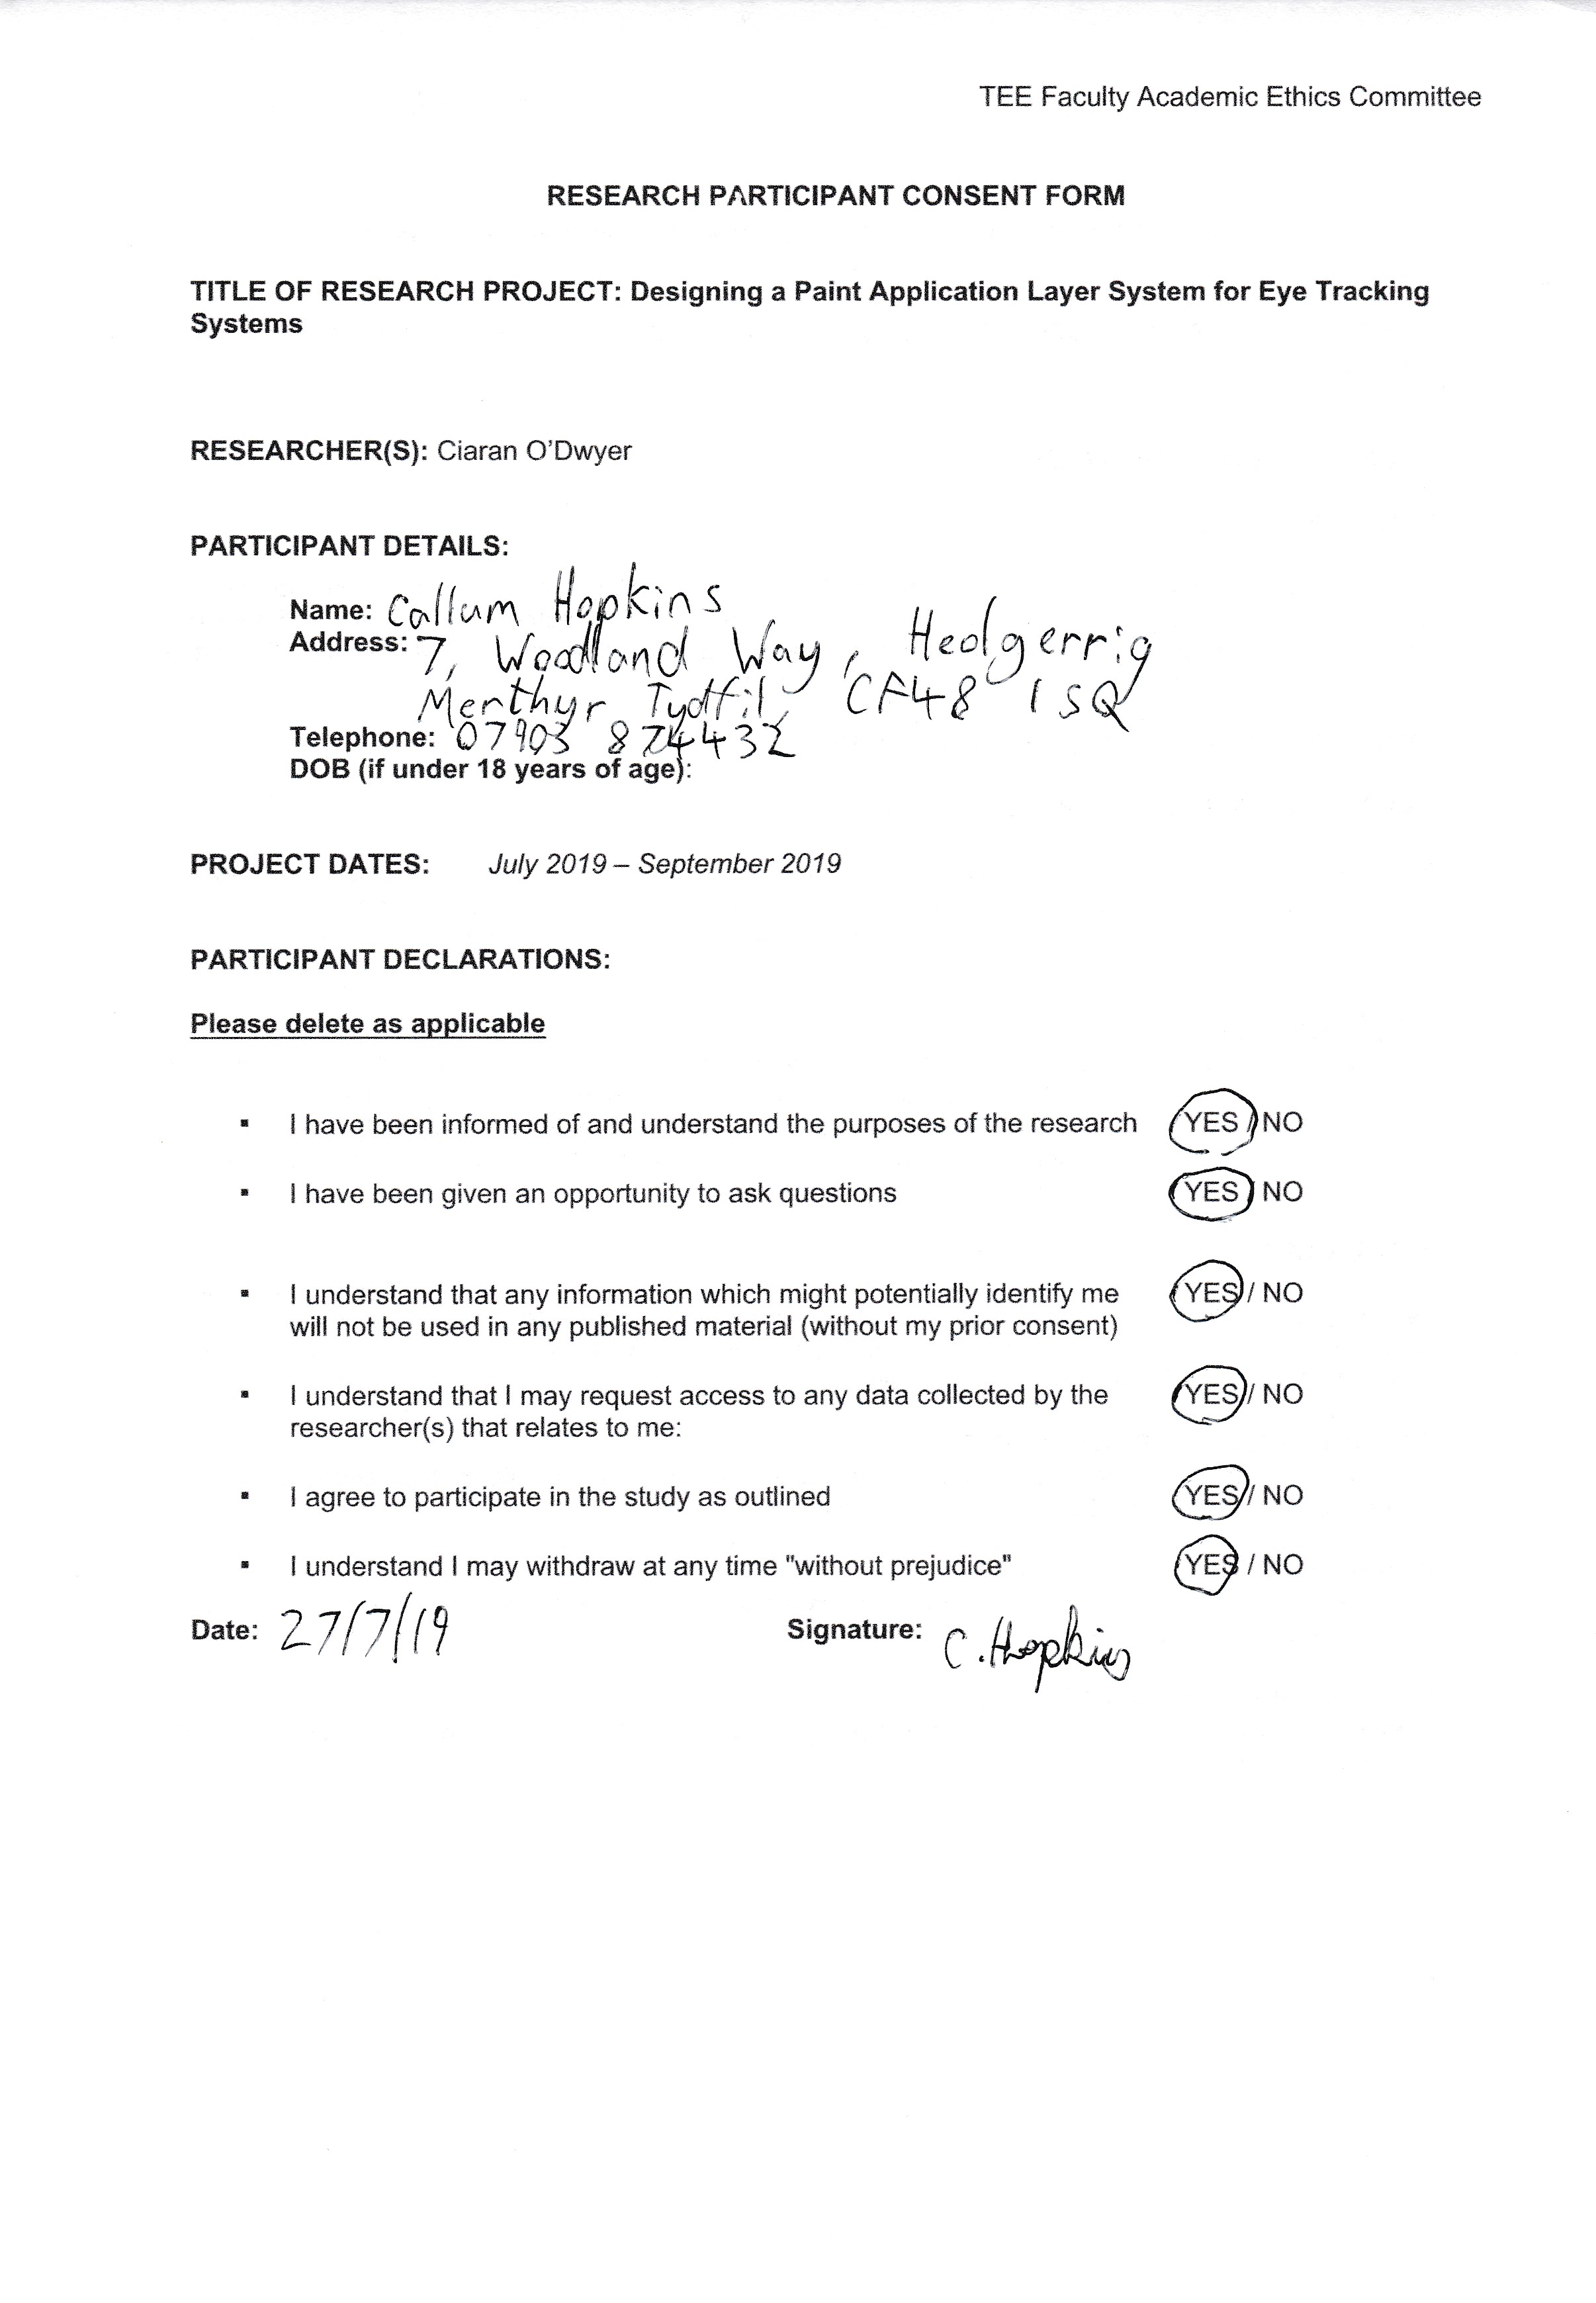 TEE Faculty Academic Ethics Committee
RESEARCH PARTICIPANT CONSENT FORM
TITLE OF RESEARCH PROJECT: Designing a Paint Application Layer System for Eye Tracking
Systems
RESEARCHER(S): Ciaran O'Dwyer
PARTICIPANT DETAILS:
Name: Callum Hopkins
Address: 7, Woodland Way, Heolgerrig
Merthyr Tydfil, CF48 1SQ
Telephone: 07903 874432
DOB (if under 18 years of age):
PROJECT DATES: July 2019 – September 2019
PARTICIPANT DECLARATIONS:
Please delete as applicable
▪ I have been informed of and understand the purposes of the research YES / NO
▪ I have been given an opportunity to ask questions YES / NO
▪ I understand that any information which might potentially identify me YES / NO
will not be used in any published material (without my prior consent)
▪ I understand that I may request access to any data collected by the YES / NO
researcher(s) that relates to me:
▪ I agree to participate in the study as outlined YES / NO
▪ I understand I may withdraw at any time "without prejudice" YES / NO
Date: 27/7/19 Signature: C. Hopkins